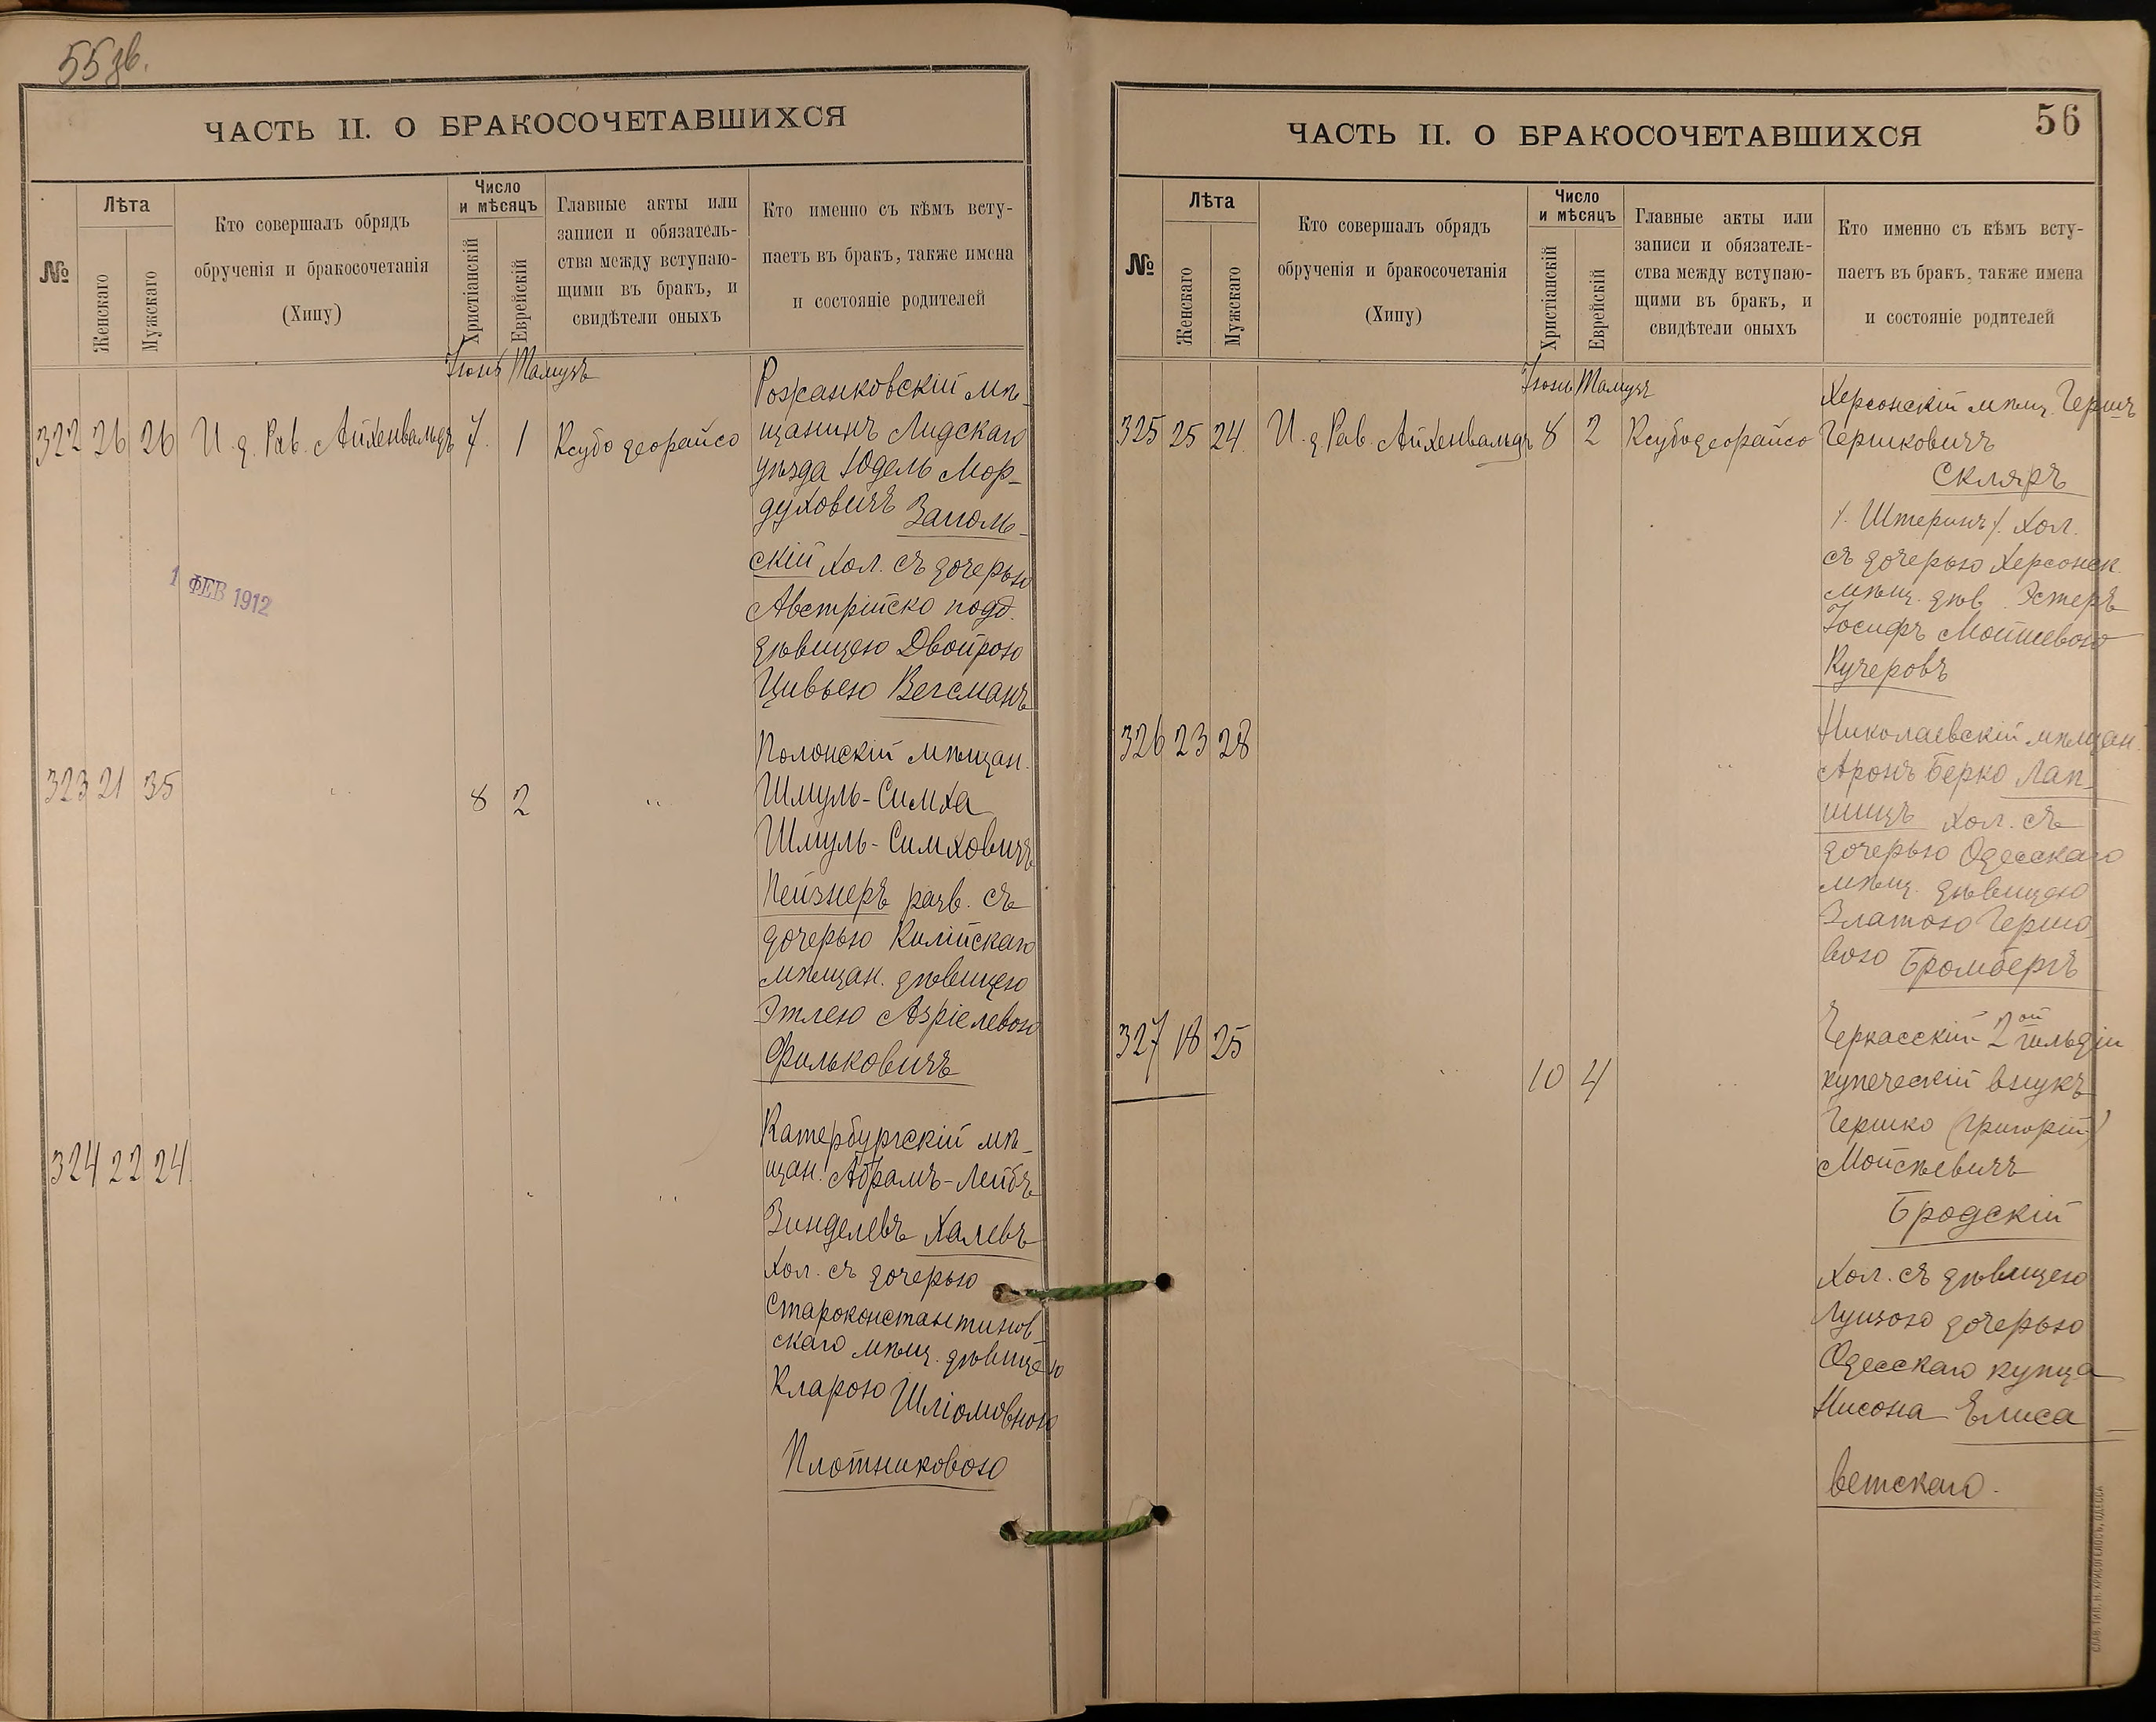 55 зв.
ЧАСТЬ II. О БРАКОСОЧЕТАВШИХСЯ
№
Лѣта
Женскаго
Мужскаго
Кто совершалъ обрядъ
обрученія и бракосочетанія
(Хипу)
Число
и мѣсяцъ
Христіанскій
Еврейскій
Главные акты или
записи и обязатель-
ства между вступаю-
щими въ бракъ, и
свидѣтели оныхъ
Кто именно съ кѣмъ всту-
паетъ въ бракъ, также имена
и состояніе родителей
Іюнь Тамузъ
322 26 26 И. д. Рав. Айхенвальдъ 7. 1 Ксубо деорайсо
Рожанковскій мѣ-
щанинъ Лидскаго
уѣзда Юдель Мор-
духовичъ Заполь-
скій хол. съ дочерью
Австрійско подд.
дѣвицею Двойрою
Цивьею Вегсманъ
1 ФЕВ 1912
323 21 35 " 8 2 "
Полонскій мѣщан.
Шмуль-Симха
Шмуль-Симховичъ
Пейзнеръ разв. съ
дочерью Килійскаго
мѣщан. дѣвицею
Этлею Азріелевою
Фильковичъ
324 22 24 " "
Катербургскій мѣ-
щан. Абрамъ-Лейбъ
Зинделевъ Халевъ
хол. съ дочерью
Староконстантинов-
скаго мѣщ. дѣвицею
Кларою Шліомовною
Плотниковою
56
ЧАСТЬ II. О БРАКОСОЧЕТАВШИХСЯ
№
Лѣта
Женскаго
Мужскаго
Кто совершалъ обрядъ
обрученія и бракосочетанія
(Хипу)
Число
и мѣсяцъ
Христіанскій
Еврейскій
Главные акты или
записи и обязатель-
ства между вступаю-
щими въ бракъ, и
свидѣтели оныхъ
Кто именно съ кѣмъ всту-
паетъ въ бракъ, также имена
и состояніе родителей
Іюнь Тамузъ
325 25 24 И. д. Рав. Айхенвальдъ 8 2 Ксубо деорайсо
Херсонскій мѣщ. Гершъ
Гершковичъ
Скляръ
/. Штеринъ/. хол.
съ дочерью Херсонск.
мѣщ. дѣв. Эстеръ
Іосифъ Мошевою
Кучеровъ
326 23 28 "
Николаевскій мѣщан.
Аронъ Берко Лап-
шицъ хол. съ
дочерью Одесскаго
мѣщ. дѣвицею
Златою Гершо-
вою Бромбергъ
327 18 25 " 10 4 "
Черкасскій 2ой гильдіи
купеческій внукъ
Гершко (Григорій)
Мойсѣевичъ
Бродскій
хол. съ дѣвицею
Луизою дочерью
Одесскаго купца
Нисона Елиса-
ветскаго.
СЛАВ. ТИП. Н. ХРИСОГЕЛОСЪ, ОДЕССА